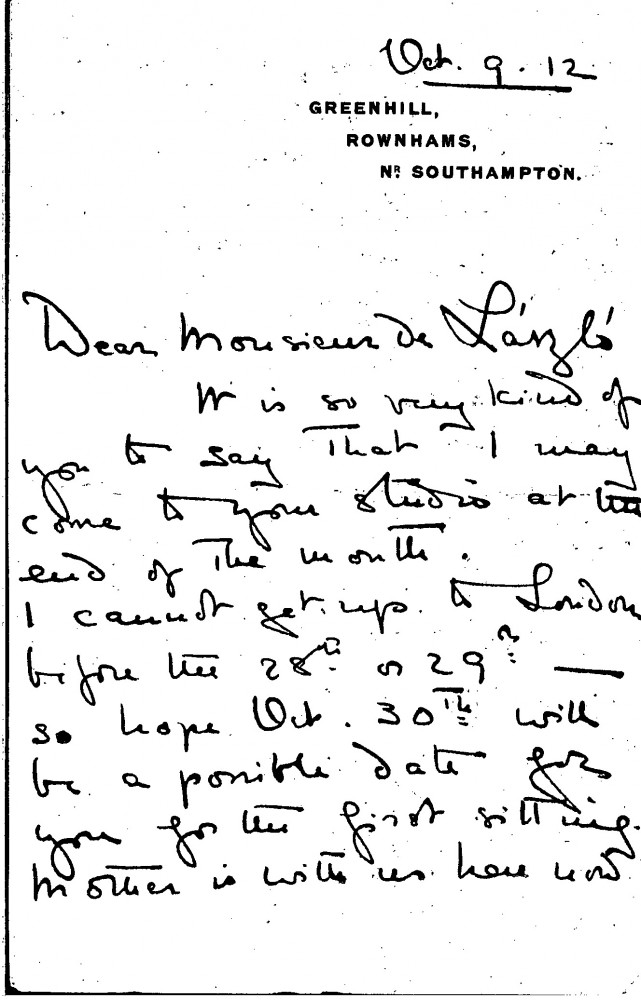 Oct. 9. 12
GREENHILL,
ROWNHAMS,
NR SOUTHAMPTON.
Dear Monsieur de László
It is so very kind of
you to say that I may
come to your studio at the
end of the month.
I cannot get up to London
before the 28th or 29th —
so hope Oct. 30th will
be a possible date for
you for the first sitting.
Mother is with us here now